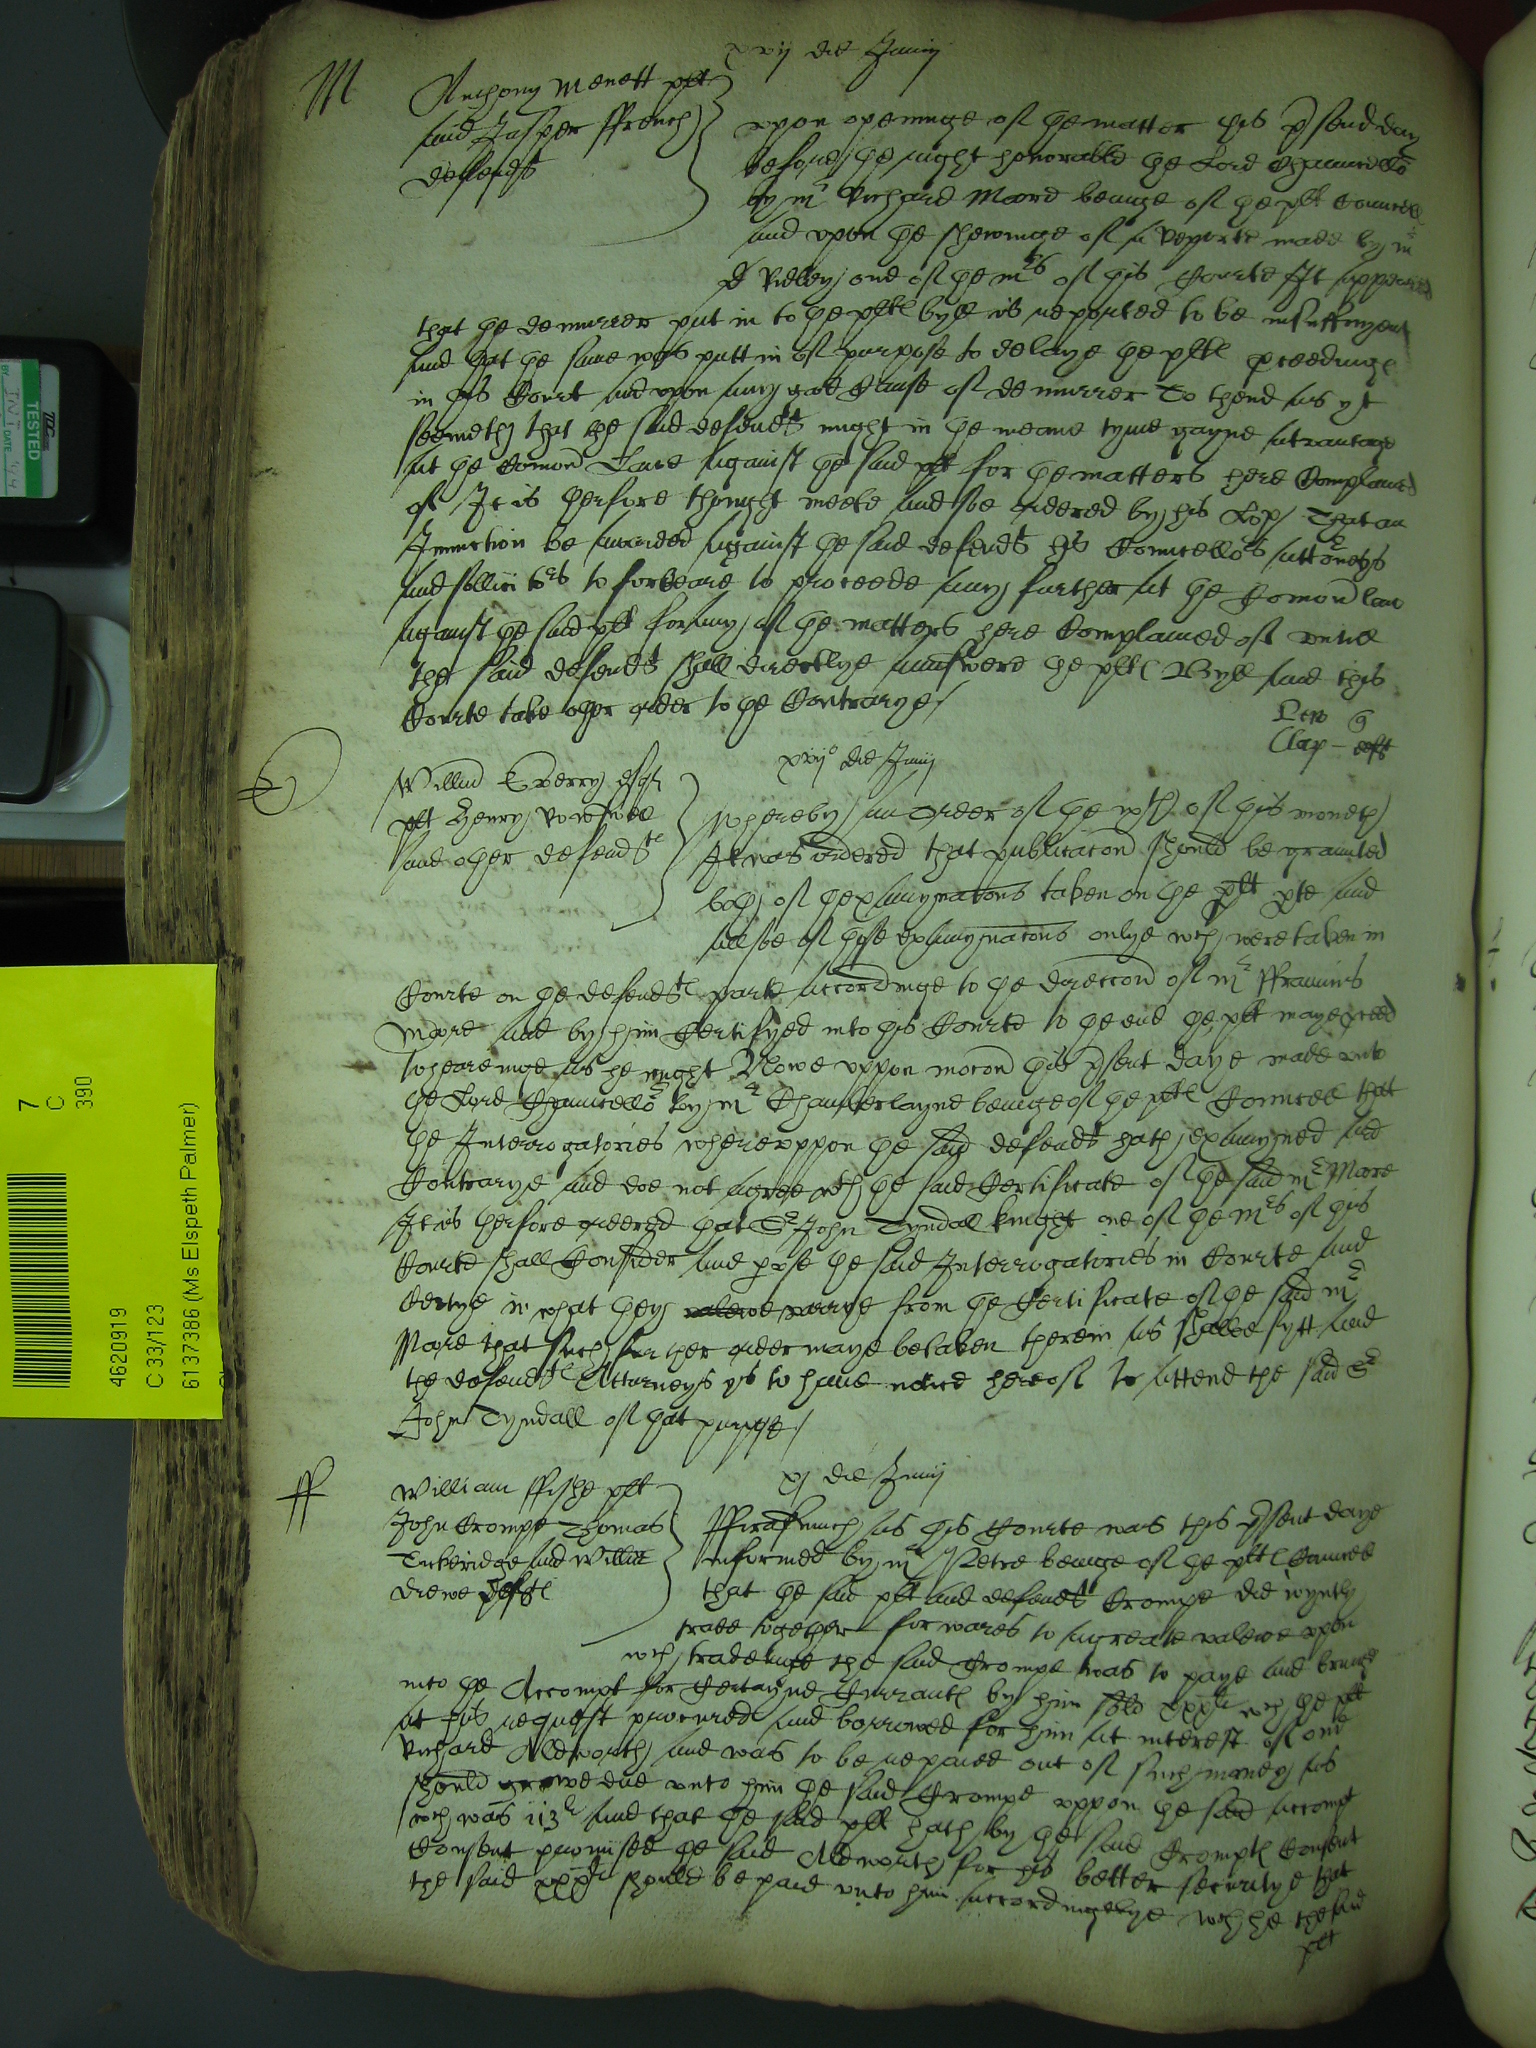 xvij die Junij
M
Anthony Menett plt
and Jasper ffrench
defendt
vpon openinge of the matter this p̄sent day
before the right honorable the Lord Chauncellor
by mr Richard Moore beinge of the plt Councell
and vpon the shewinge of a Reporte made by mr
D Ridley one of the mrs of this Courte It appeared
that the demurrer put in to the pltl bylle is reported to be insuffityent
and that the same was putt in of purpose to delaye the pltl pceedinge
in this Court and vpon any good Cause of demurrer To thend as yt
seemeth that the said defendt might in the meane tyme gayne advantage
at the Comon Lawe against the said plt for the matters here Complained
of It is therfore thought meete and soe ordered by his Lop That an
Iniunction be awarded against the said defendt his Councellors Attorneys
and sollicitors to forbeare to proceede any further at the Comon law
against the said plt for any of the matters here Complained of vntill
the said defendt shall directlye aunswere the pltl Bylle and this
Courte take other order to the Contrarye
Lew
Clap - deft
xvijo die Junij
Willm Every esqr
plt Henry Rowswell
and other defendtl
Whereby an Order of the xth of this moneth
It was ordered that publicacon should be graunted
both of thexamynacons taken on the plt pte and
allsoe of those examynacons onlye wch were taken in
Courte on the defendtl parte accordinge to the direccon of mr ffrauncis
Moore and by him Certifyed into this Courte to the end the plt maye pceed
to hearinge as he might Nowe vppon mocon this p̄sent daye made vnto
the Lord Chauncellor by mr Chamberlayne beinge of the pltl Councell that
the Interrogatories wherevppon the said defendt hath examyned are
Contrarye and doe not agree wth the said Certificate of the said mr Moore
It is therfore ordered that Sr John Tyndall knight one of the Mrs of this
Courte shall Consider and pose the said Interrogatories in Courte and
Certyfye in what they varrye from the Certificate of the said mr
Moore that such further order maye be taken therein as shalbe fytt and
the defendtl Attorneys ys to have notice hereof to attend the said Sr
John Tyndall of that purpose
xj die Junij
ff
William ffishe plt
John Crompe Thomas
Tickeridge and Willm
Drewe deftl
fforasmuch as this Courte was this p̄sent daye
informed by mr Petre beinge of the pltl Councell
that the said plt and defendt Crompe did ioyntly
trade together for wares to a greate valewe vpon
wch tradeinge the said Crompe was to paye and bringe
into the Accompt for Certayne Currantl by him sold xxxli wch the plt
at his request procured and borrowed for him at interest of one
Richard Aldworth and was to be repaied out of such money as
should growe due vnto him the said Crompe vppon the said accompt
wch was 113li and that the said plt hath by the said Crompl Consent
Consent promised the said Aldworth for his better securitye that
the said xxxli should be paid vnto him accordingelye wch he the said
plt
TESTED
DATE
7
C
390
4620919
C 33/123
6137386 (Ms Elspeth Palmer)